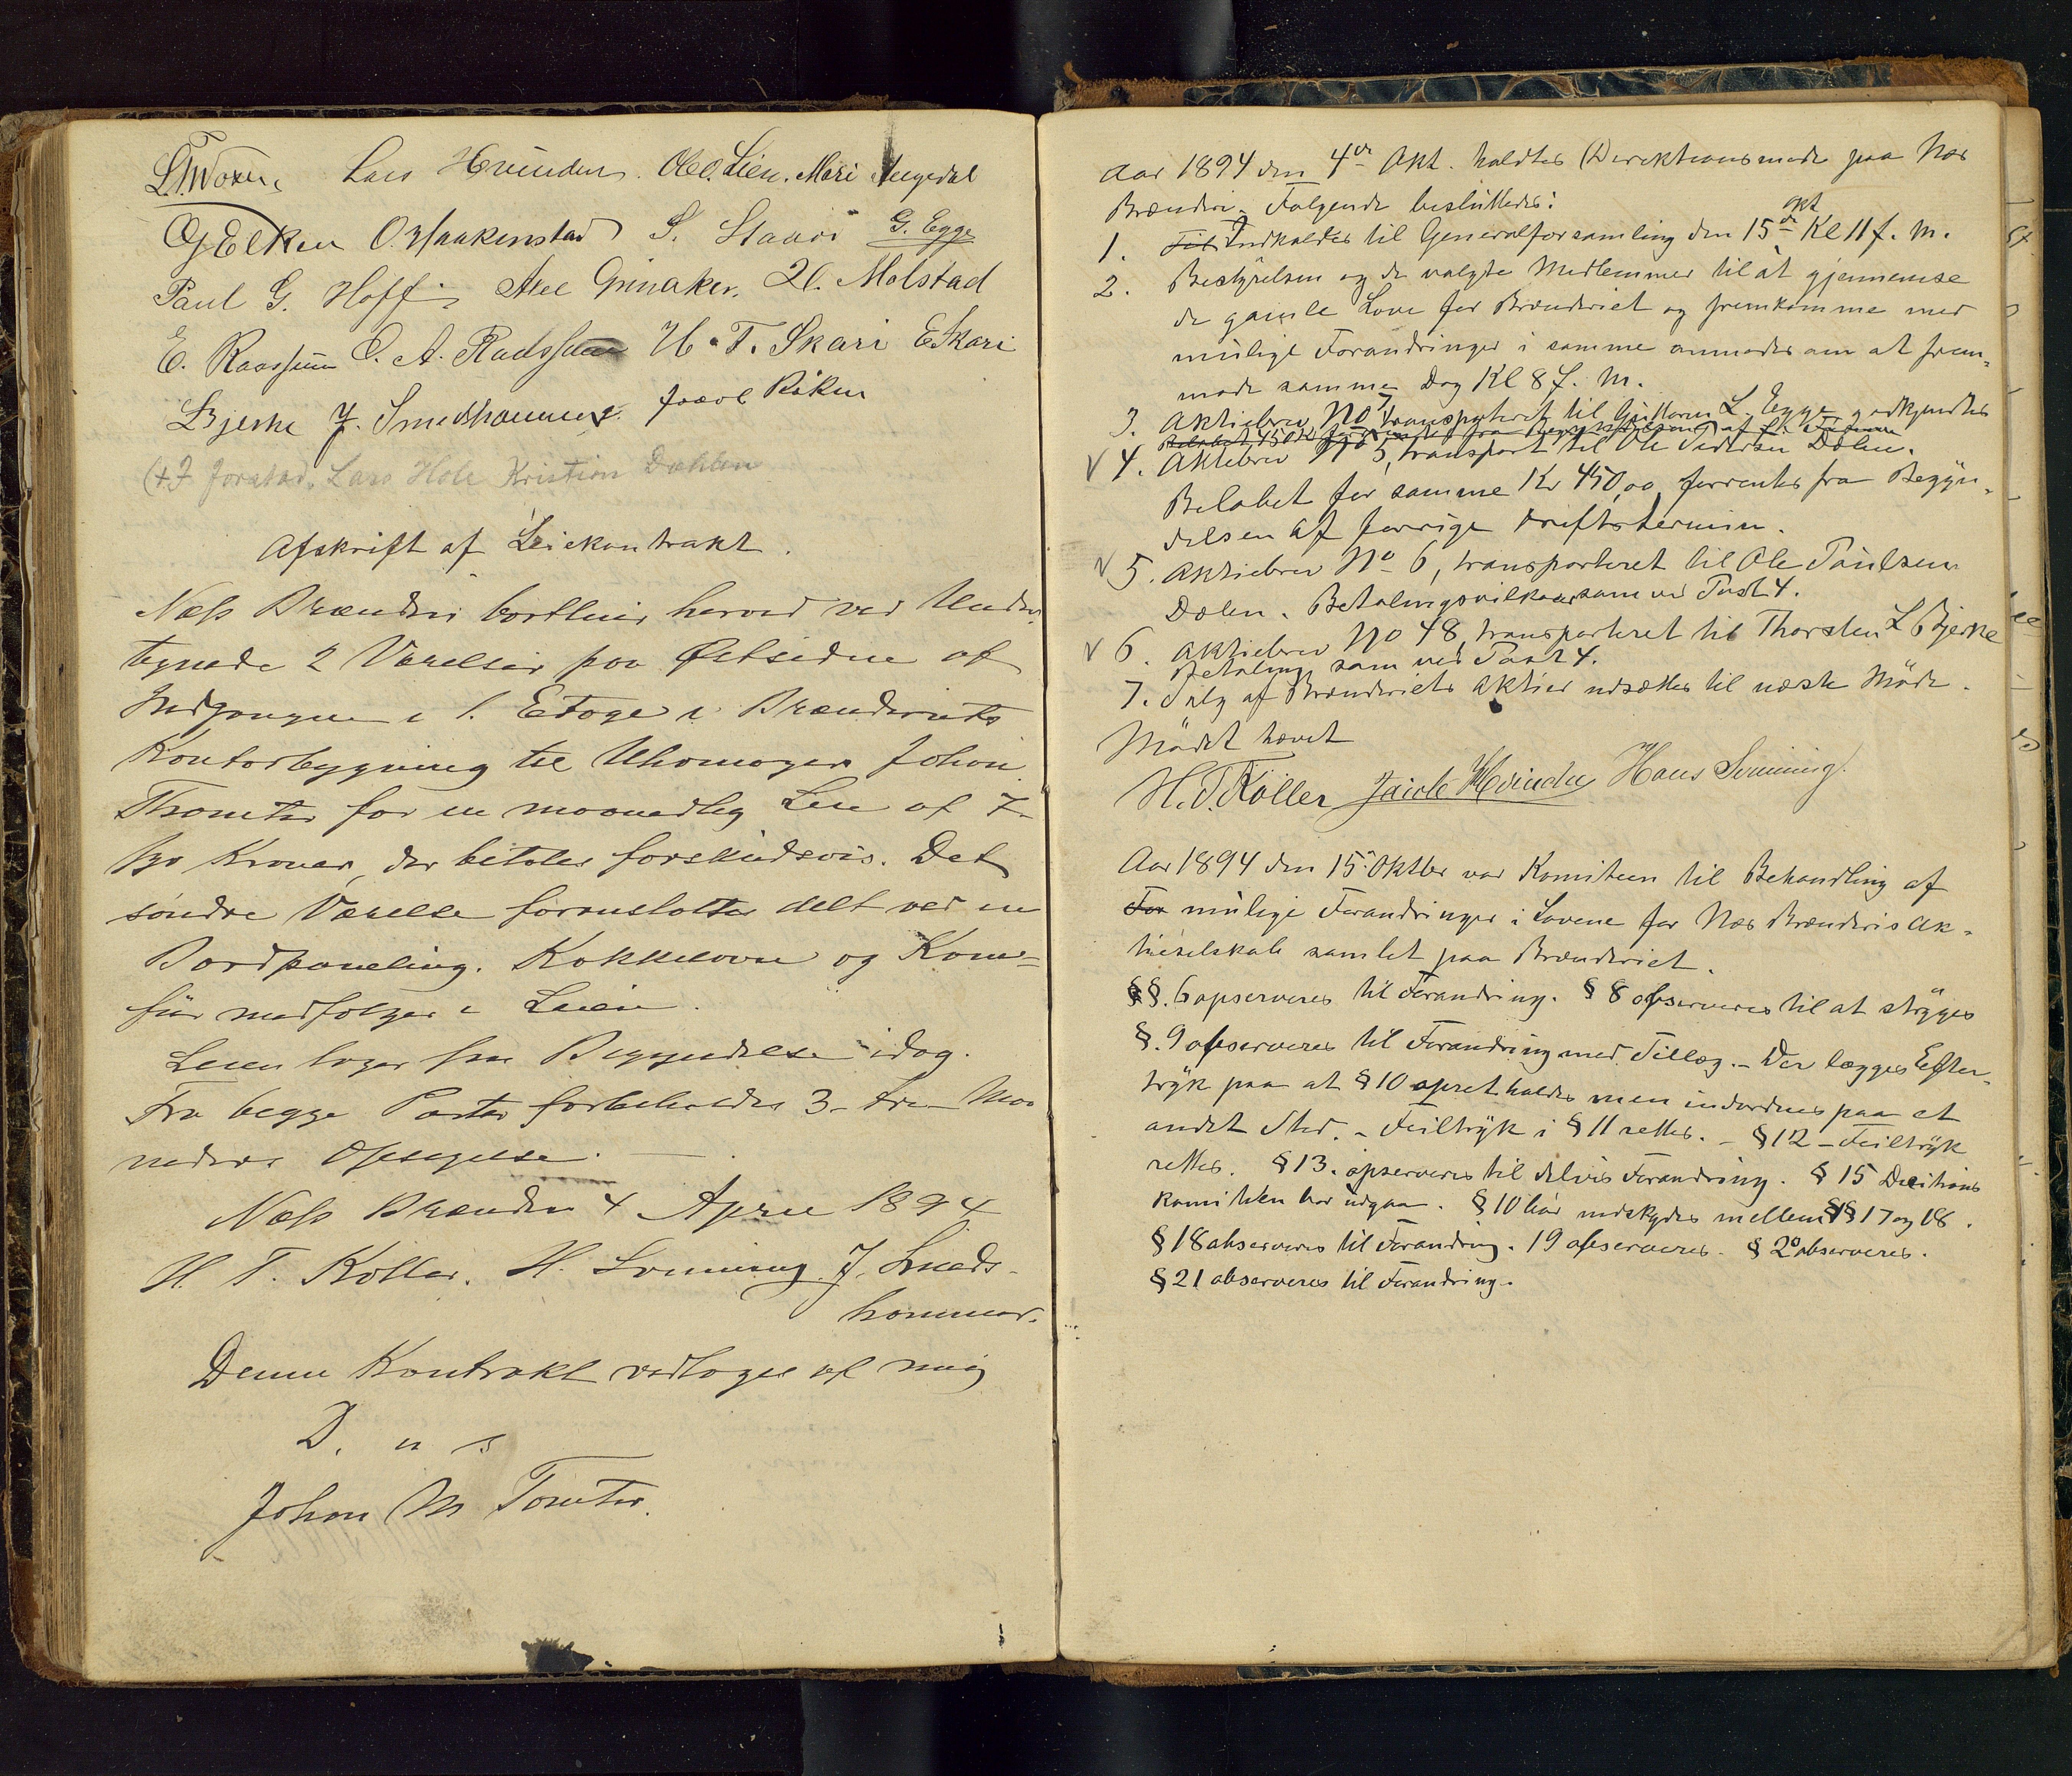 Lars Hvinden. Ole O. Lien. Mari Angedal
G Elken O. Haakenstad S. Staxri G. Egge
Paul G. Hoff Axel Grinaker. H. Molstad
E. Raassum O. A. Raassum H. T. Skari E Skari
L Bjerke J. Smedshammer. Røken
Forstad. Lars Hole Kristian Dahlen
Afskrift af Leiekontrakt.
Næss Brænderi bortleier herved ved Under-
tegnede 2 Værelser paa Østsiden af
Indgangen i 1. Etage i Brænderiets
Kontorbygning til Uhrmager Johan
Thomter for en maanedlig Leie af 7-
syv Kroner, der betales forskudsvis. Det
søndre Værelse foranstaltes delt ved en
Bordpaneling. Kakkelovn og Kom-
für medfølger i Leien.
Leien tager sin Begyndelse idag.
Fra begge Parter forbeholdes 3- tre- Maa
neders Opsigelse.
Næss Brænderi 4 April 1894
H. T. Koller. H. Svenning. J. Smeds-
hammer.
Denne Kontrakt vedtages af mig
D. u s
Johan M Tomter.
Aar 1894 den 4de Okt. holdtes Direktionsmøde paa Næs
Brænderi. Følgende besluttedes:
1. Til Indkaldes til Generalforsamling den 15de Okt Kl 11 f. m.
2. Bestyrelsen og de valgte Medlemmer til at gjennemse
de gamle Love for Brænderiet og fremkomme med
mulige Forandringer i samme anmodes om at frem-
møde samme Dag Kl 8 f. m.
3. Aktiebrev No 7, transporteret til Guttorm L. Egge, godkjendtes
4. Aktiebrev No 5, transport til Ole Pedersen Dølen.
Beløbet for samme Kr 450,00 forrentes fra Begyn-
delsen af forrige Driftstermin.
5. Aktiebrev No 6, transporteret til Ole Paulsen
Dølen. Betalingsvilkaar som ved Post 4.
6. Aktiebrev No 48, transporteret til Thorsten L Bjerke
Betaling som ved Post 4.
7. Salg af Brænderiets Aktier udsættes til næste Møde.
Mödet hævet
H. T. Koller Jacob Hvinden Hans Svenning.
Aar 1894 den 15. Oktber var Komiteen til Behandling af
For mulige Forandringer i Lovene for Næs Brænderis Ak-
tieselskab samlet paa Brænderiet.
§§. 6 opserveres til Forandring. § 8 observeres til at strÿges
§. 9 observeres til Forandring med Tillæg. - Der lægges Efter-
trÿk paa at § 10 opretholdes men indordnes paa et
andet Sted. - Feiltrÿk i § 11 rettes. - § 12 - Feiltrÿk
rettes. § 13. opserveres til delvis Forandring. § 15 Decitions
komiteen bør udgaa. § 10 bør indskydes mellem §§ 17 og 18.
§ 18 observeres til Forandring. 19 observeres. § 20 observeres.
§ 21 observeres til Forandring.